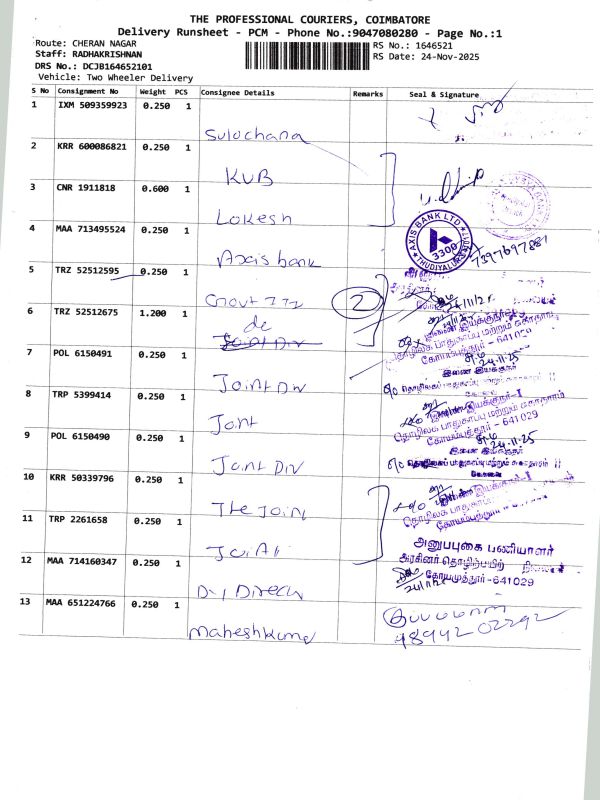 THE PROFESSIONAL COURIERS, COIMBATORE
Delivery Runsheet - PCM - Phone No.:9047080280 - Page No.:1
Route: CHERAN NAGAR
Staff: RADHAKRISHNAN
DRS No.: DCJB164652101
Vehicle: Two Wheeler Delivery
RS No.: 1646521
RS Date: 24-Nov-2025
S No Consignment No Weight PCS Consignee Details Remarks Seal & Signature
1 IXM 509359923 0.250 1
Sulochana
2 KRR 600086821 0.250 1
KVB
3 CNR 1911818 0.600 1
Lokesh
4 MAA 713495524 0.250 1
Axis bank
AXIS BANK LTD
3300
7397697881
5 TRZ 52512595 0.250 1
Govt ITI
2
6 TRZ 52512675 1.200 1
de
Joint Dir
தொழிலகப் பாதுகாப்பு மற்றும் சுகாதாரம்
கோயம்புத்தூர் - 641029
24.11.25
7 POL 6150491 0.250 1
Joint Dir
8 TRP 5399414 0.250 1
Joint
தொழிலகப் பாதுகாப்பு மற்றும் சுகாதாரம்
கோயம்புத்தூர் - 641029
24.11.25
9 POL 6150490 0.250 1
Joint Dir
10 KRR 50339796 0.250 1
The Joint
11 TRP 2261658 1
Joint
அலுவலகப் பணியாளர்
அரசினர் தொழிற்பயிற்சி நிலையம்
கோயமுத்தூர்-641029
12 MAA 714160347 0.250 1
Dy Direct
13 MAA 651224766 0.250 1
Maheshkumar
9894202292